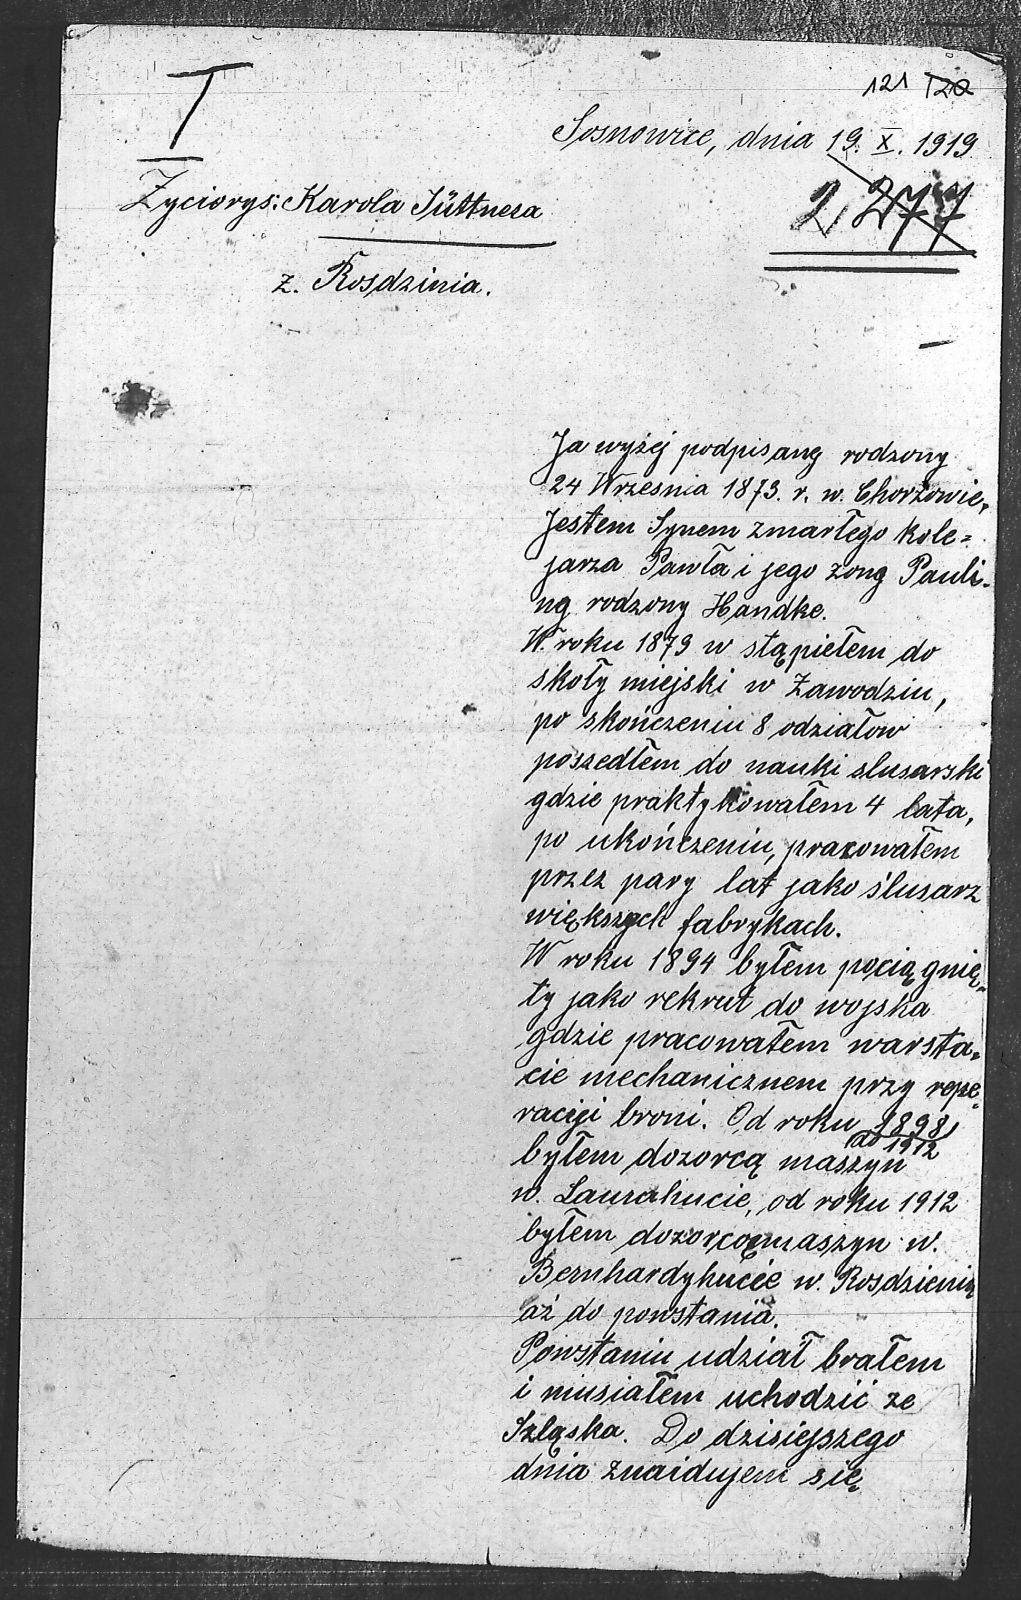 121 120
T
Sosnowice, dnia 19. X. 1919
2, 277
Zyciorys: Karola Jüttnera
z. Rosdzinia.
Ja wyżej podpisany rodzony
24 Wrzesnia 1873. r. w. Chorzowie,
Jestem Synem zmarłego kole=
jarza Pawła i jego żony Pauli=
ny rodzony Handke.
W. roku 1879 w stąpiełem do
skoły miejski w Zawodziu,
po skończeniu 8 odziałow
poszedłem do nauki slusarski
gdzie praktykowałem 4 lata,
po ukończeniu, pracowałem
przez pary lat jako ślusarz
większych fabrykach.
W roku 1894 byłem pociągnię=
ty jako rekrut do wojska
gdzie pracowałem warsta=
cie mechanicznem przy repe=
racyji broni. Od roku 1898,
do 1912
byłem dozorcą maszyn
w. Laurahucie, od roku 1912
byłem dozorcą maszyn w.
Bernhardyhucie w. Rosdzieniu
aż do powstania.
Powstaniu udział brałem
i musiałem uchodzić ze
Szląska. Do dzisiejszego
dnia znaidujem się